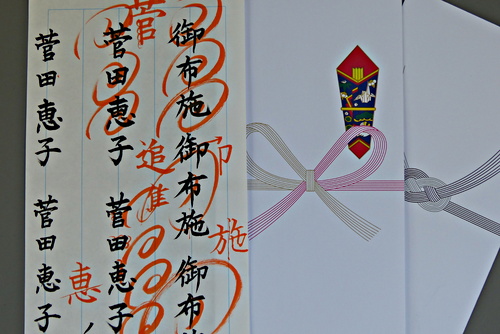 御布施 御布施 御布施
菅田恵子 菅田恵子
菅田恵子 菅田恵子
菅
追進
施
恵